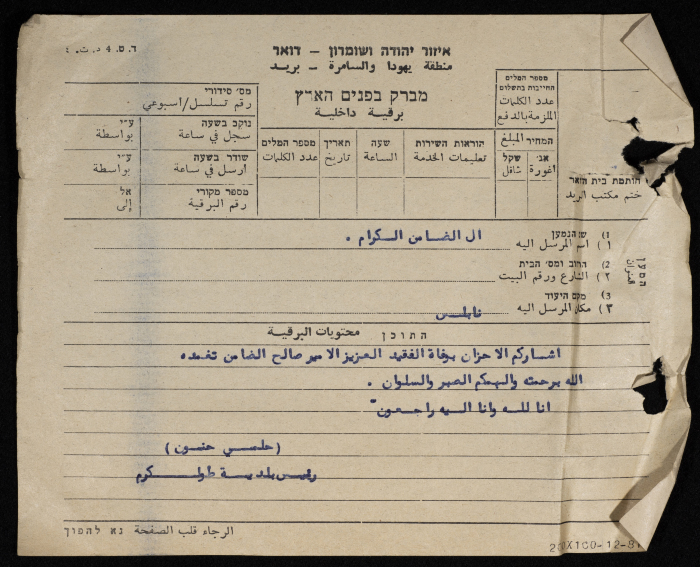 ד.ס. 4 د.ت.
איזור יהודה ושומרון – דואר
منطقة يهودا والسامرة – بريد
מברק בפנים הארץ
برقية داخلية
מס' סידורי
رقم تسلسل/اسبوعي
נוקב בשעה
سجل في ساعة
ע"י
بواسطة
שודר בשעה
ارسل في ساعة
ע"י
بواسطة
מספר מקורי
رقم البرقية
אל
إلى
מספר המלים
החייבות בתשלום
عدد الكلمات
الملزمة بالدفع
המחיר المبلغ
אג' שקל
اغورة شاقل
הוראות השירות
تعليمات الخدمة
שעה
الساعة
תאריך
تاريخ
מספר המלים
عدد الكلمات
חותמת בית הדאר
ختم مكتب البريد
המען
عنوان
1) שם הנמען
١) اسم المرسل اليه
ال الضامن الكرام .
2) הרחוב ומס' הבית
٢) الشارع ورقم البيت
3) מקום היעוד
٣) مكان المرسل اليه
نابلس
התוכן محتويات البرقية
اشاركم الاحزان بوفاة الفقيد العزيز الامير صالح الضامن تغمده
الله برحمته والهمكم الصبر والسلوان .
انا لله وانا اليه راجعون"
(حلمي حنون)
رئيس بلدية طولكرم
الرجاء قلب الصفحة נא להפוך